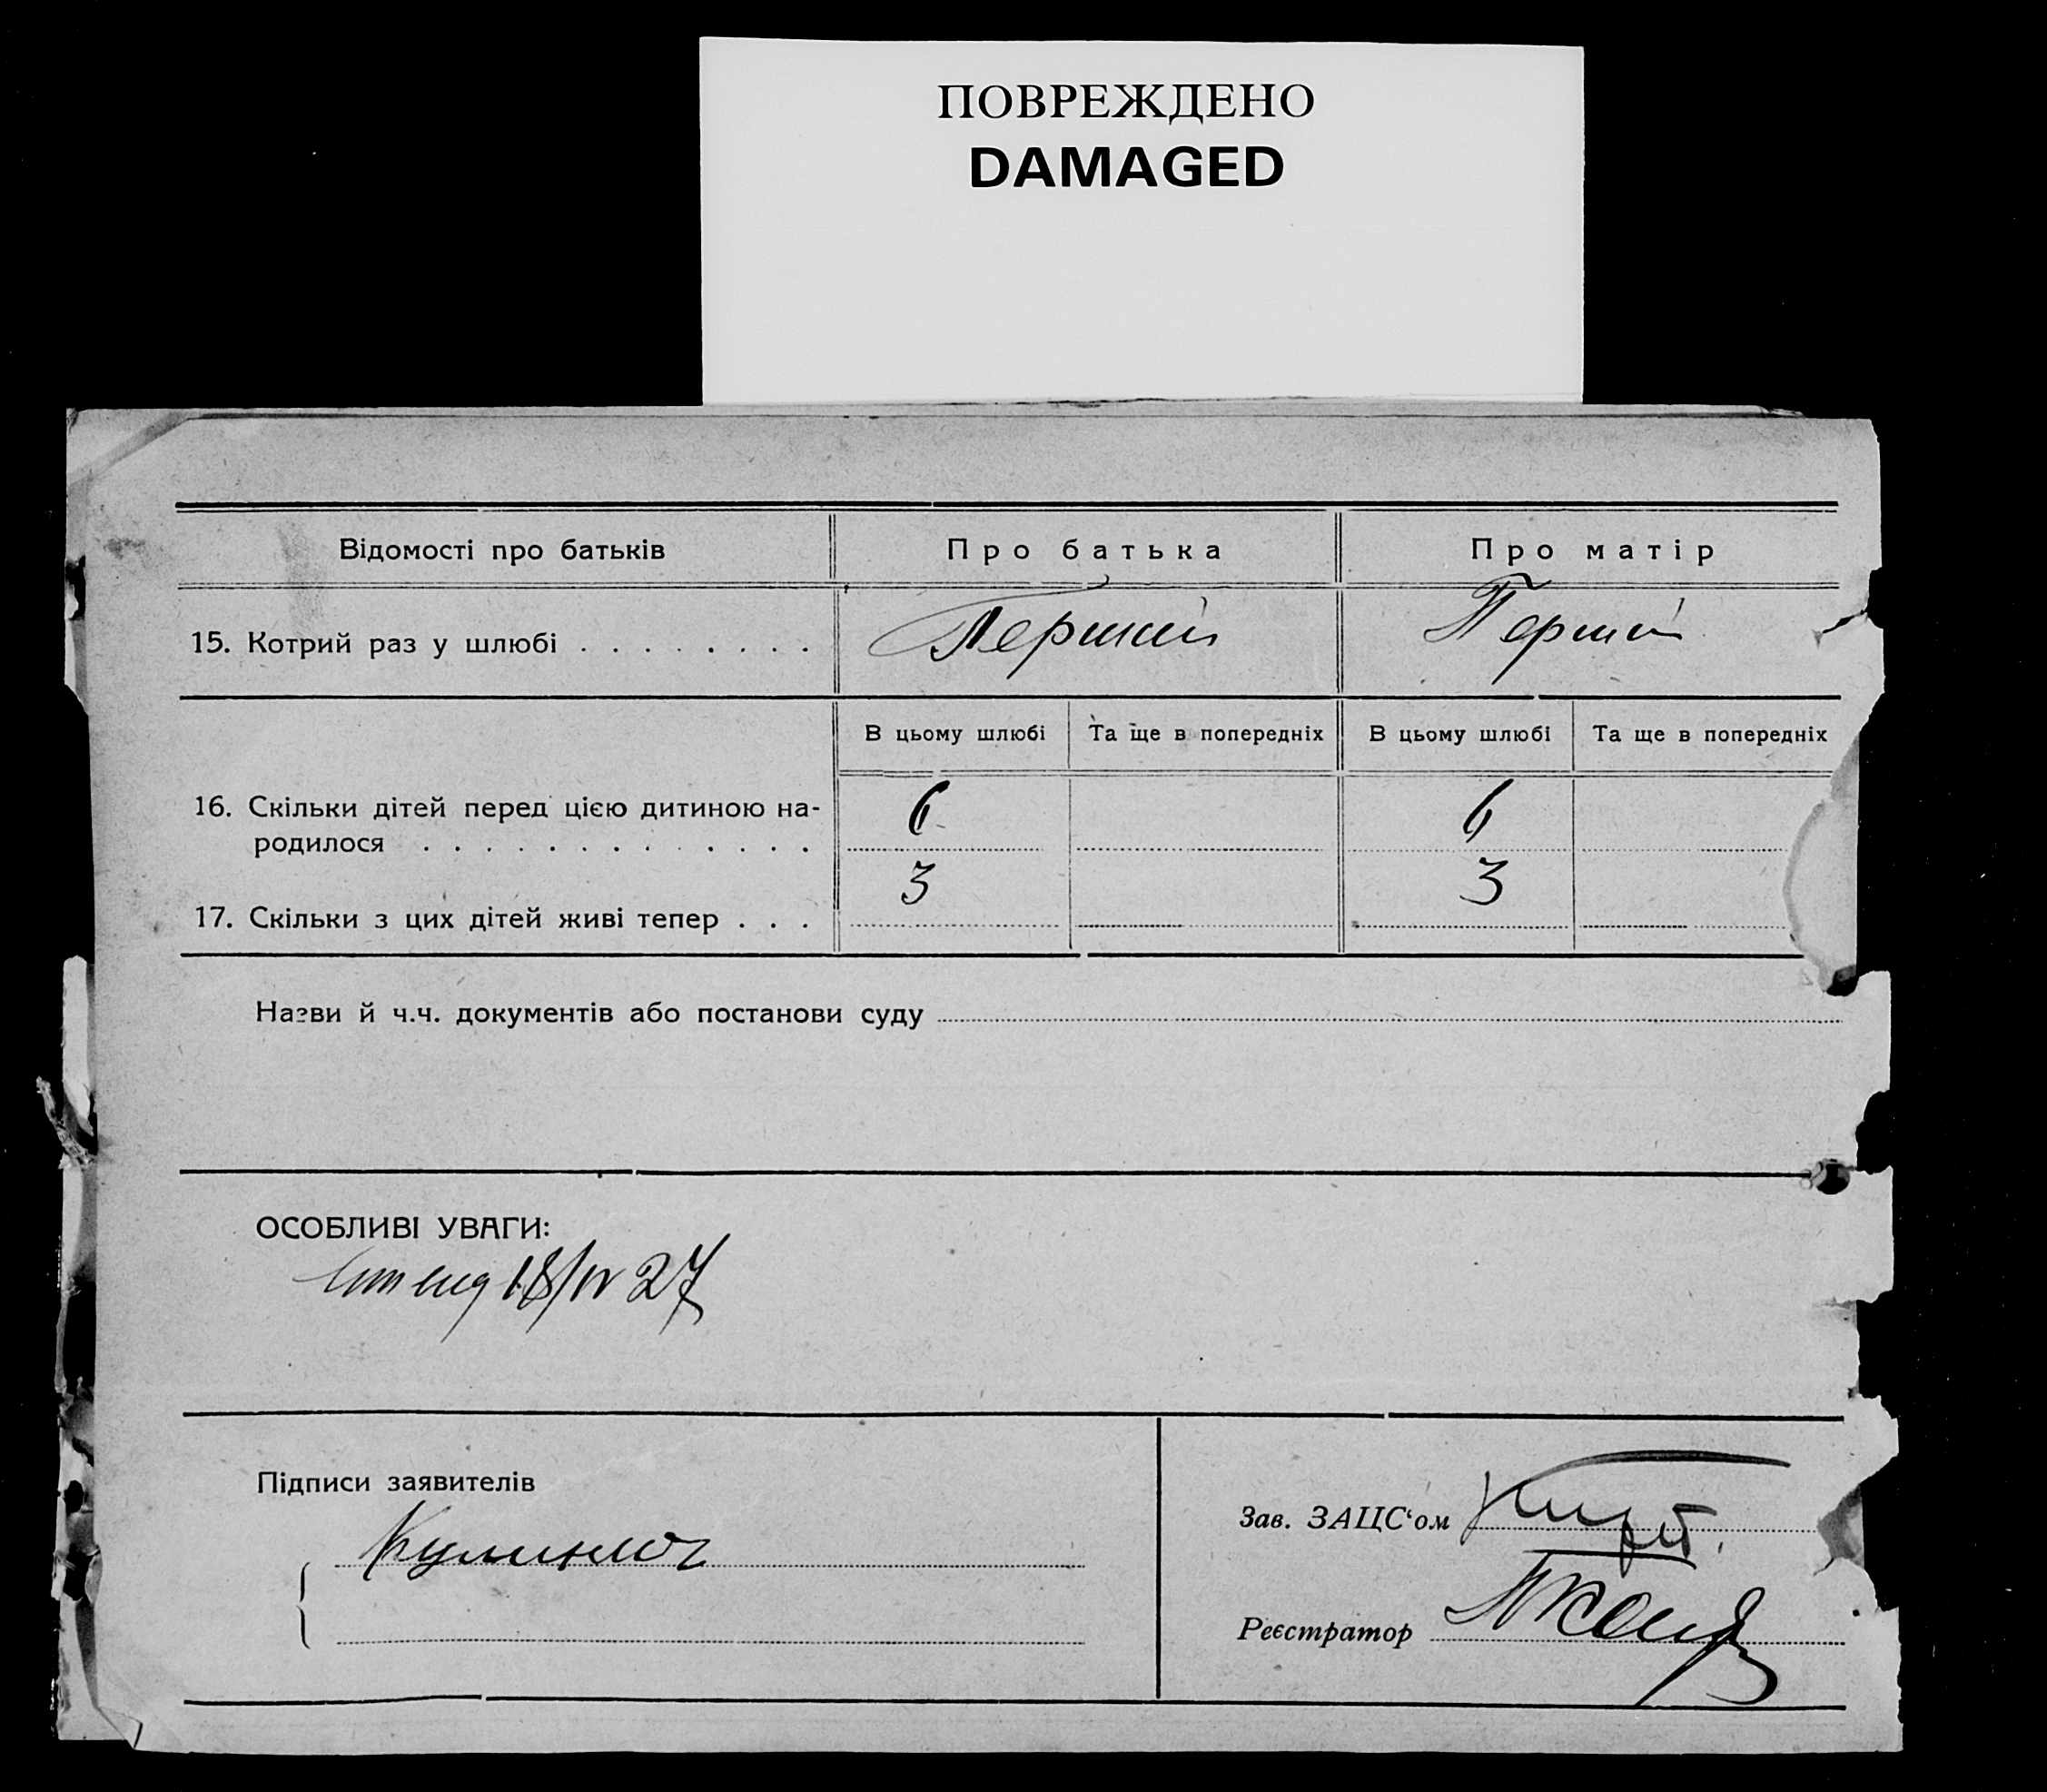 ПОВРЕЖДЕНО
DAMAGED
Відомості про батьків Про батька Про матір
15. Котрий раз у шлюбі . . . . . . . . Перший Перший
В цьому шлюбі Та ще в попередніх В цьому шлюбі Та ще в попередніх
16. Скільки дітей перед цією дитиною на-
родилося . . . . . . . . . . . . . 6 6
17. Скільки з цих дітей живі тепер . . . 3 3
Назви й ч.ч. документів або постанови суду
ОСОБЛИВІ УВАГИ:
18/IV 27
Підписи заявителів
Зав. ЗАЦС‘ом
Реєстратор